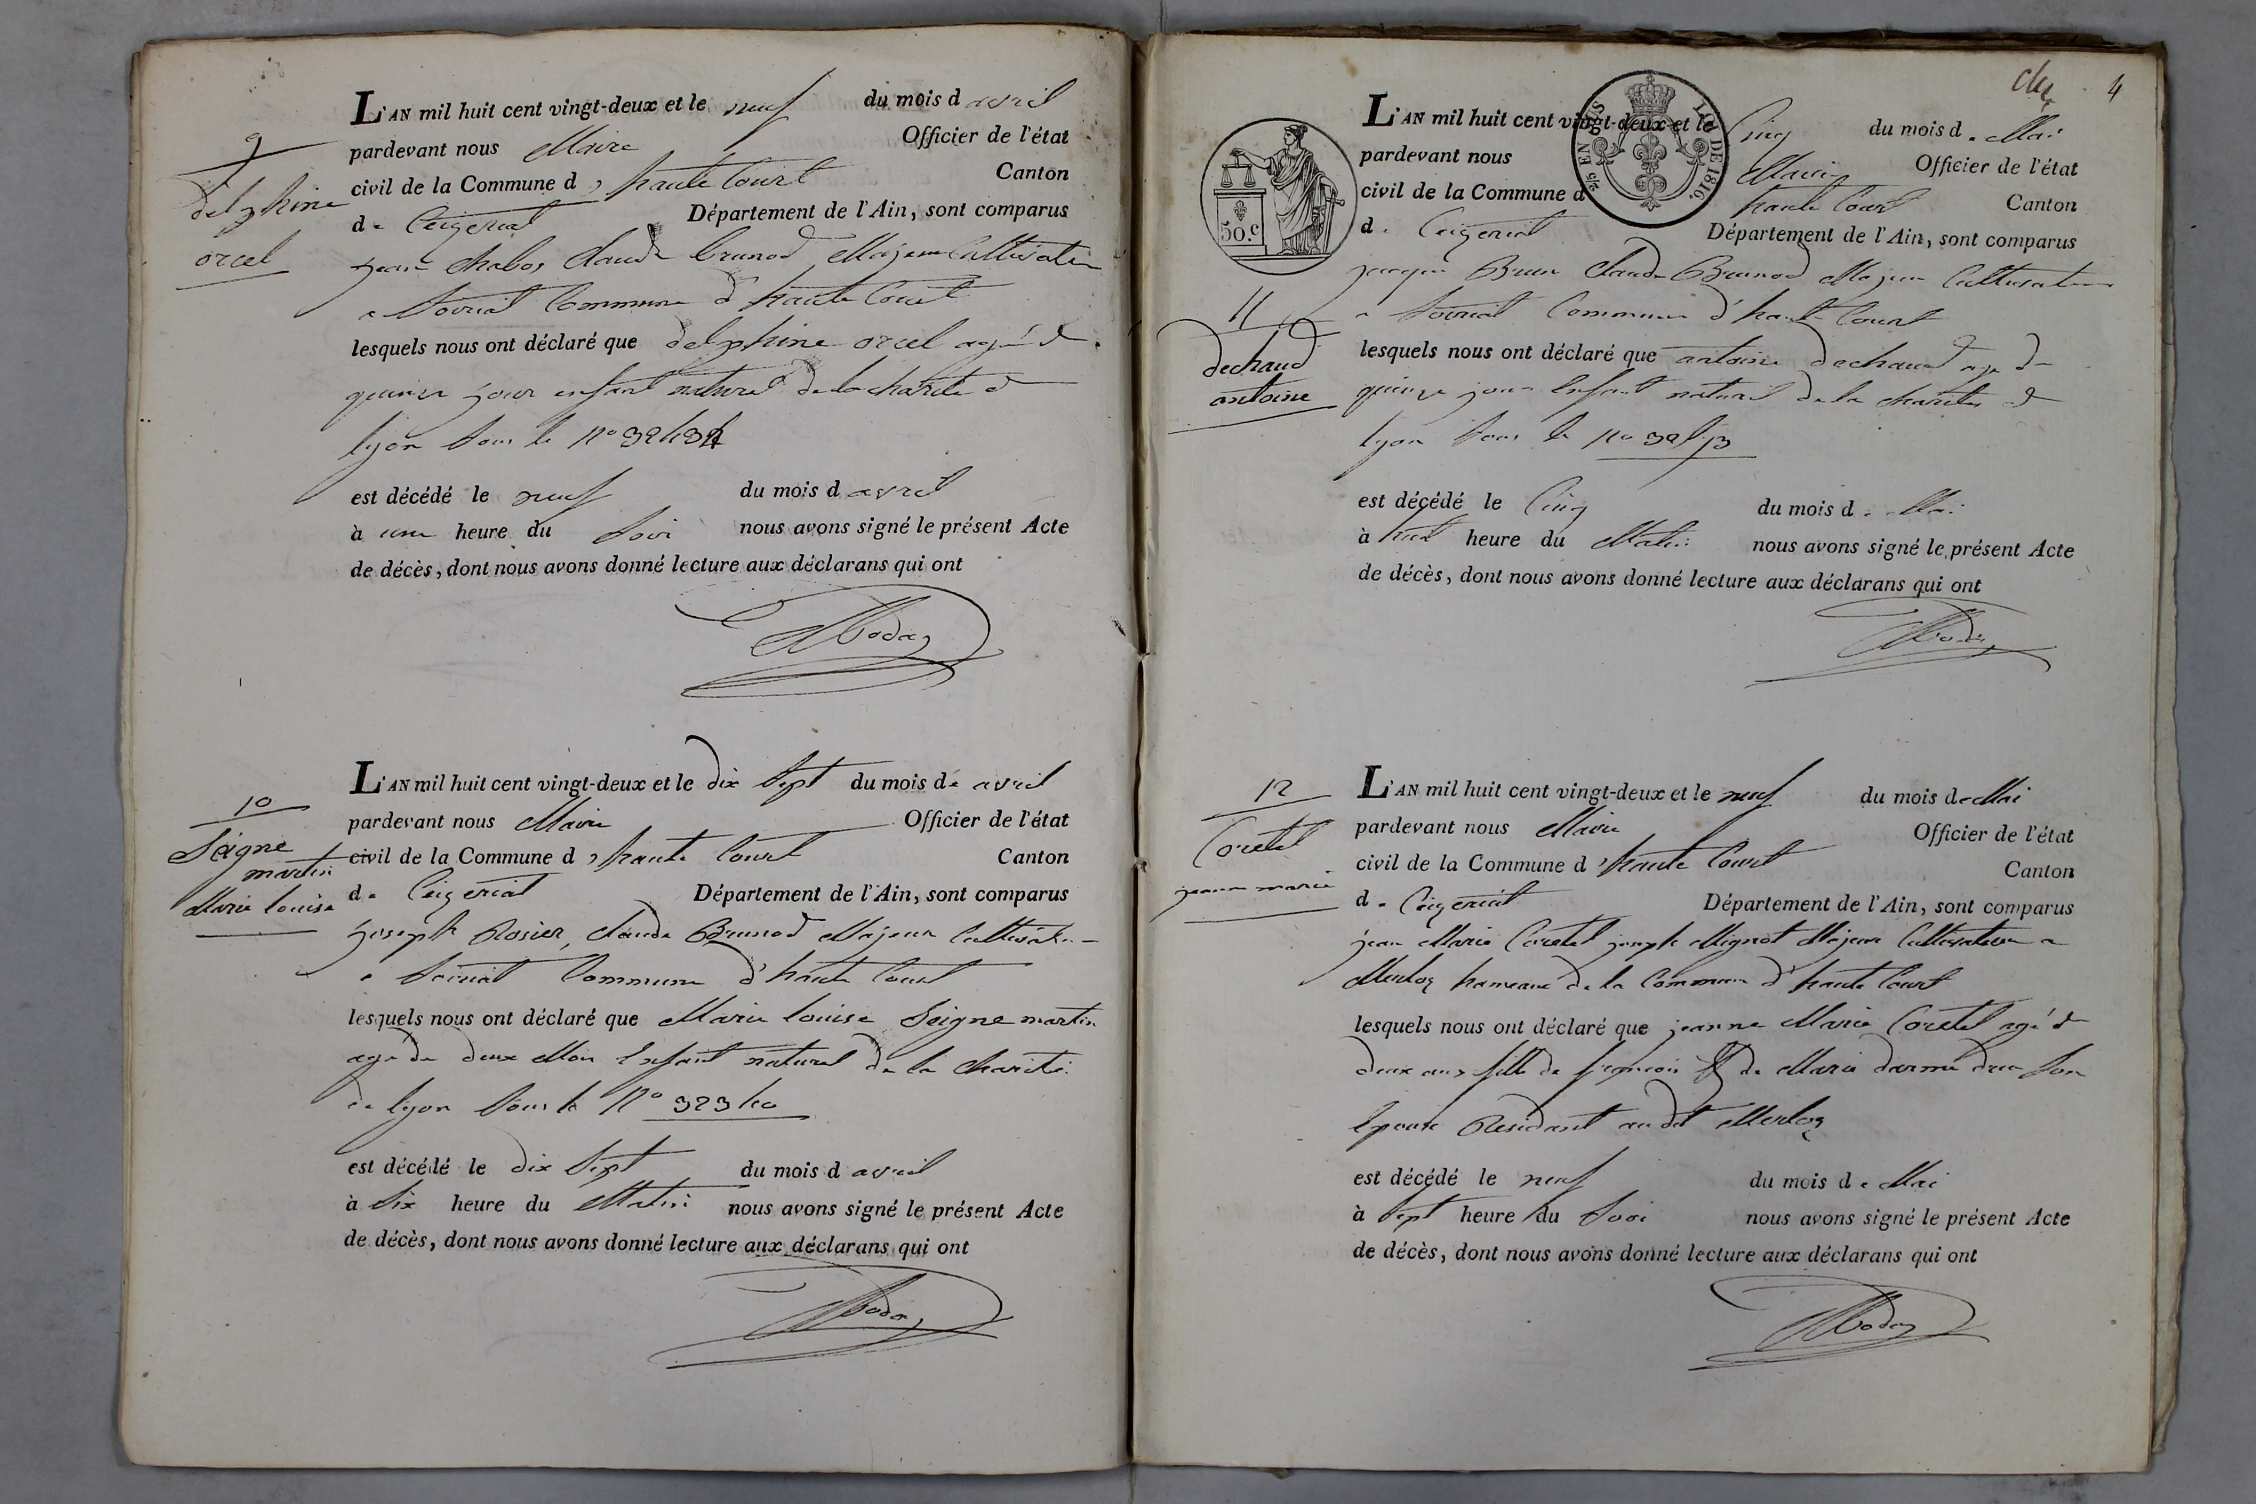 9
delphine
orcel
L'AN mil huit cent vingt-deux et le neuf du mois d avril
pardevant nous Maire Officier de l'état
civil de la Commune d'haute Court Canton
de Ceizeriat Département de l'Ain, sont comparus
jean Claude brunod Majeur Cultivateur
a Commune d'haute Court
lesquels nous ont déclaré que delphine orcel agé de
quinze jour enfant naturel de la charité de
lyon sous le No
est décédé le neuf du mois d avril
à une heure du soir nous avons signé le présent Acte
de décès, dont nous avons donné lecture aux déclarans qui ont
10
Seigne
martin
Marie louise
L'AN mil huit cent vingt-deux et le dix sept du mois de avril
pardevant nous Maire Officier de l'état
civil de la Commune d'haute Court Canton
de Ceizeriat Département de l'Ain, sont comparus
joseph Rosier, claude Brunod Majeur Cultivateur
a Commune d'haute Court
lesquels nous ont déclaré que Marie louise Seigne martin
agé de deux Mois Enfant naturel de la charité
de lyon sous le No 32340
est décédé le dix sept du mois d avril
à six heure du Matin nous avons signé le présent Acte
de décès, dont nous avons donné lecture aux déclarans qui ont
4
50.c
EN SUS
LOI DE 1816.
11
dechaud
antoine
L'AN mil huit cent vingt-deux et le Cinq du mois de Mai
pardevant nous Maire Officier de l'état
civil de la Commune d haute Court Canton
de Ceizeriat Département de l'Ain, sont comparus
jacque Brun Claude Brunod Majeur Cultivateur
a Commune d'haute Court
lesquels nous ont déclaré que antoine dechaud age de
quinze jour Enfant naturel de la charité de
lyon sous le No
est décédé le Cinq du mois de Mai
à huit heure du Matin nous avons signé le présent Acte
de décès, dont nous avons donné lecture aux déclarans qui ont
12
Coretel
jeanne marie
L'AN mil huit cent vingt-deux et le neuf du mois de Mai
pardevant nous Maire Officier de l'état
civil de la Commune d'haute Court Canton
de Ceizeriat Département de l'Ain, sont comparus
jean Marie Coretel joseph Mignot Majeur Cultivateur a
Merloz hameaux de la Commune d'haute Court
lesquels nous ont déclaré que jeanne Marie Coretel agé de
deux ans fille de françois & de Marie son
Epouse Residant au dit Merloz
est décédé le neuf du mois de Mai
à sept heure du Soir nous avons signé le présent Acte
de décès, dont nous avons donné lecture aux déclarans qui ont